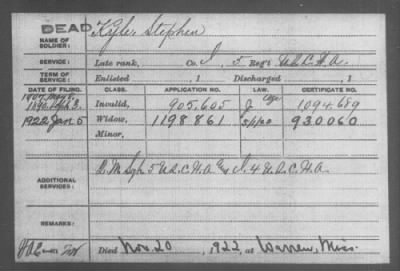 DEAD
NAME OF SOLDIER: Kyler Stephen
SERVICE: Late rank, Co. I, 5 Reg't U.S.C.H.A.
TERM OF SERVICE: Enlisted , 1 Discharged , 1
DATE OF FILING. CLASS. APPLICATION NO. LAW. CERTIFICATE NO.
1890 Sept 3. Invalid, 905,605 J Age 1094.689
1922 Jan 5 Widow, 1198861 930060
Minor,
ADDITIONAL SERVICES: Q.M. Sgt. 5 U.S.C.H.A. I. 4 U.S.C.H.A.
REMARKS:
Died Nov. 20, 1922, at Warren, Miss.